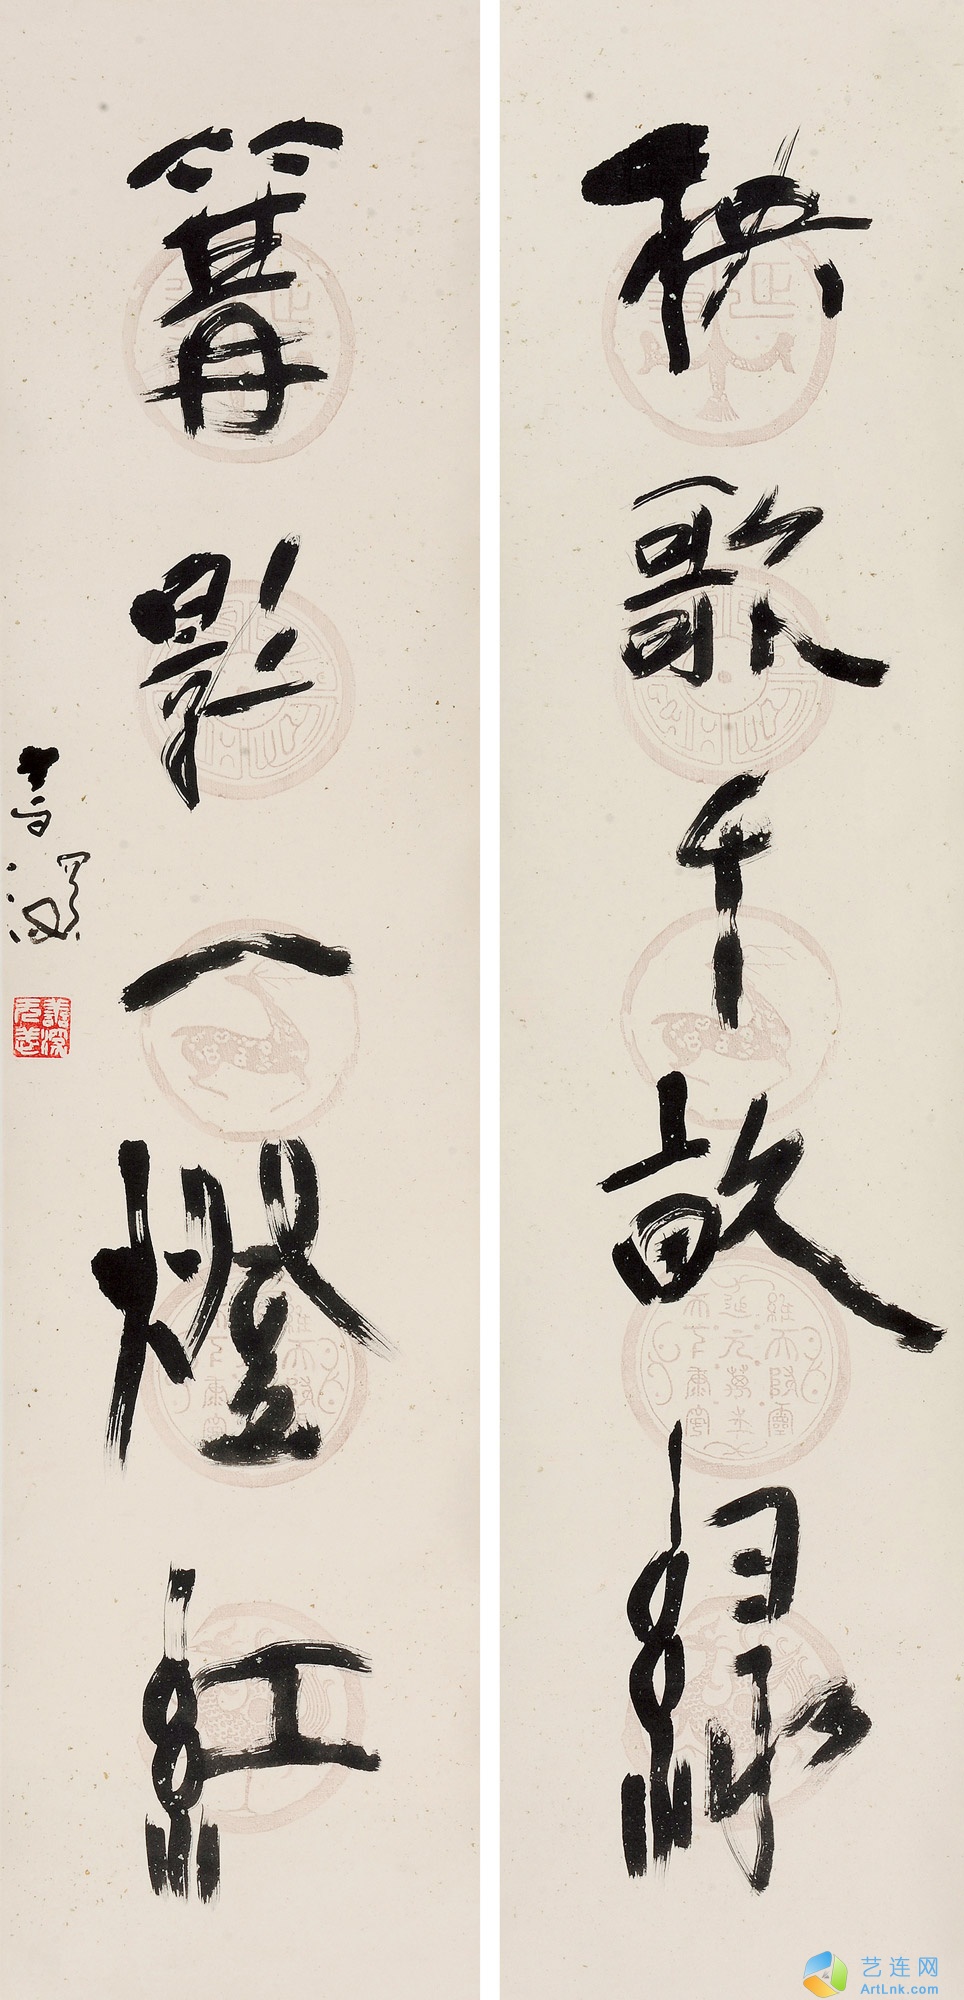 秧歌千畝綠
篝影一燈紅
善深
艺连网
ArtLnk.com